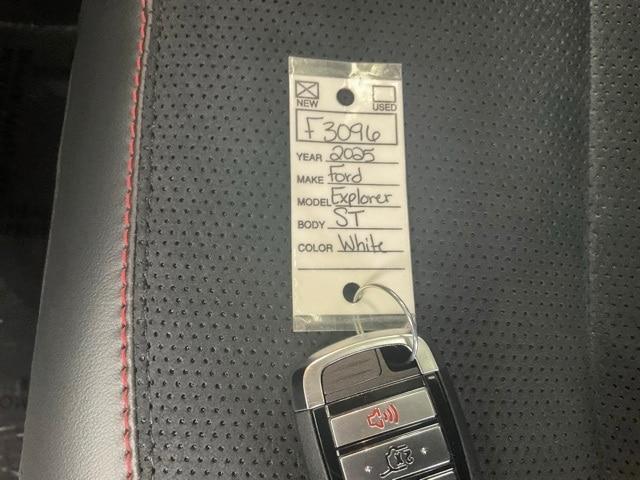 NEW USED
F3096
YEAR 2025
MAKE Ford
MODEL Explorer
BODY ST
COLOR White